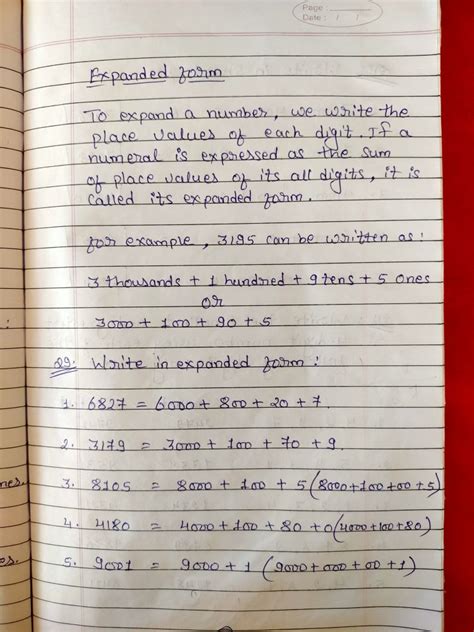 Page :
Date : / /
Expanded form
To expand a number, we write the
place values of each digit. If a
numeral is expressed as the sum
of place values of its all digits, it is
called its expanded form.
for example, 3195 can be written as:
3 thousands + 1 hundred + 9 tens + 5 ones
or
3000 + 100 + 90 + 5
Q9. Write in expanded form :
1. 6827 = 6000 + 800 + 20 + 7.
2. 3179 = 3000 + 100 + 70 + 9.
3. 8105 = 8000 + 100 + 5 (8000+100+00+5)
4. 4180 = 4000 + 100 + 80 + 0 (4000+100+80)
5. 9001 = 9000 + 1 (9000 + 000 + 00 + 1)